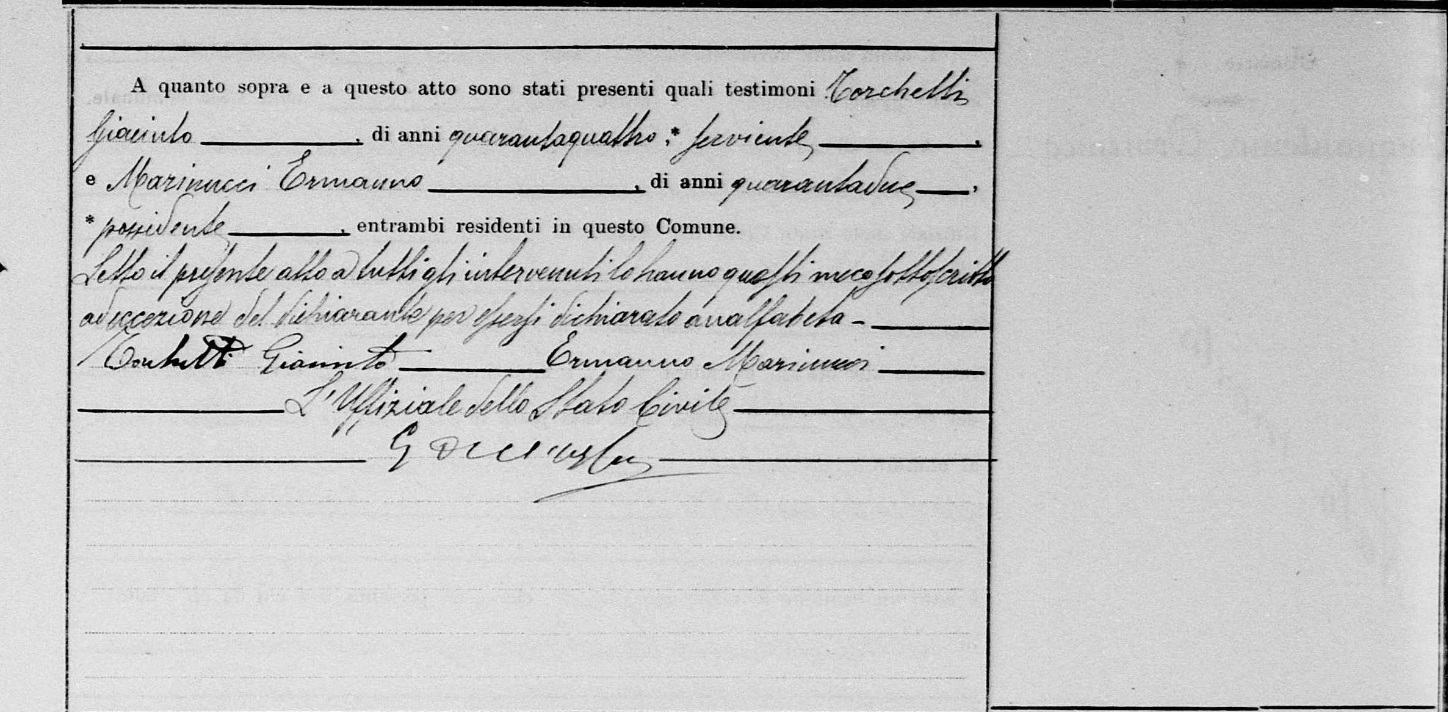 A quanto sopra e a questo atto sono stati presenti quali testimoni Torchetti
Giacinto, di anni quarantaquattro, * serviente,
e Marinucci Ermanno, di anni quarantadue,
* possidente, entrambi residenti in questo Comune.
Letto il presente atto a tutti gli intervenuti lo hanno questi meco sottoscritto
ad eccezione del dichiarante per essersi dichiarato analfabeta -
Torchetti Giacinto Ermanno Marinucci
L'Uffiziale dello Stato Civile
G